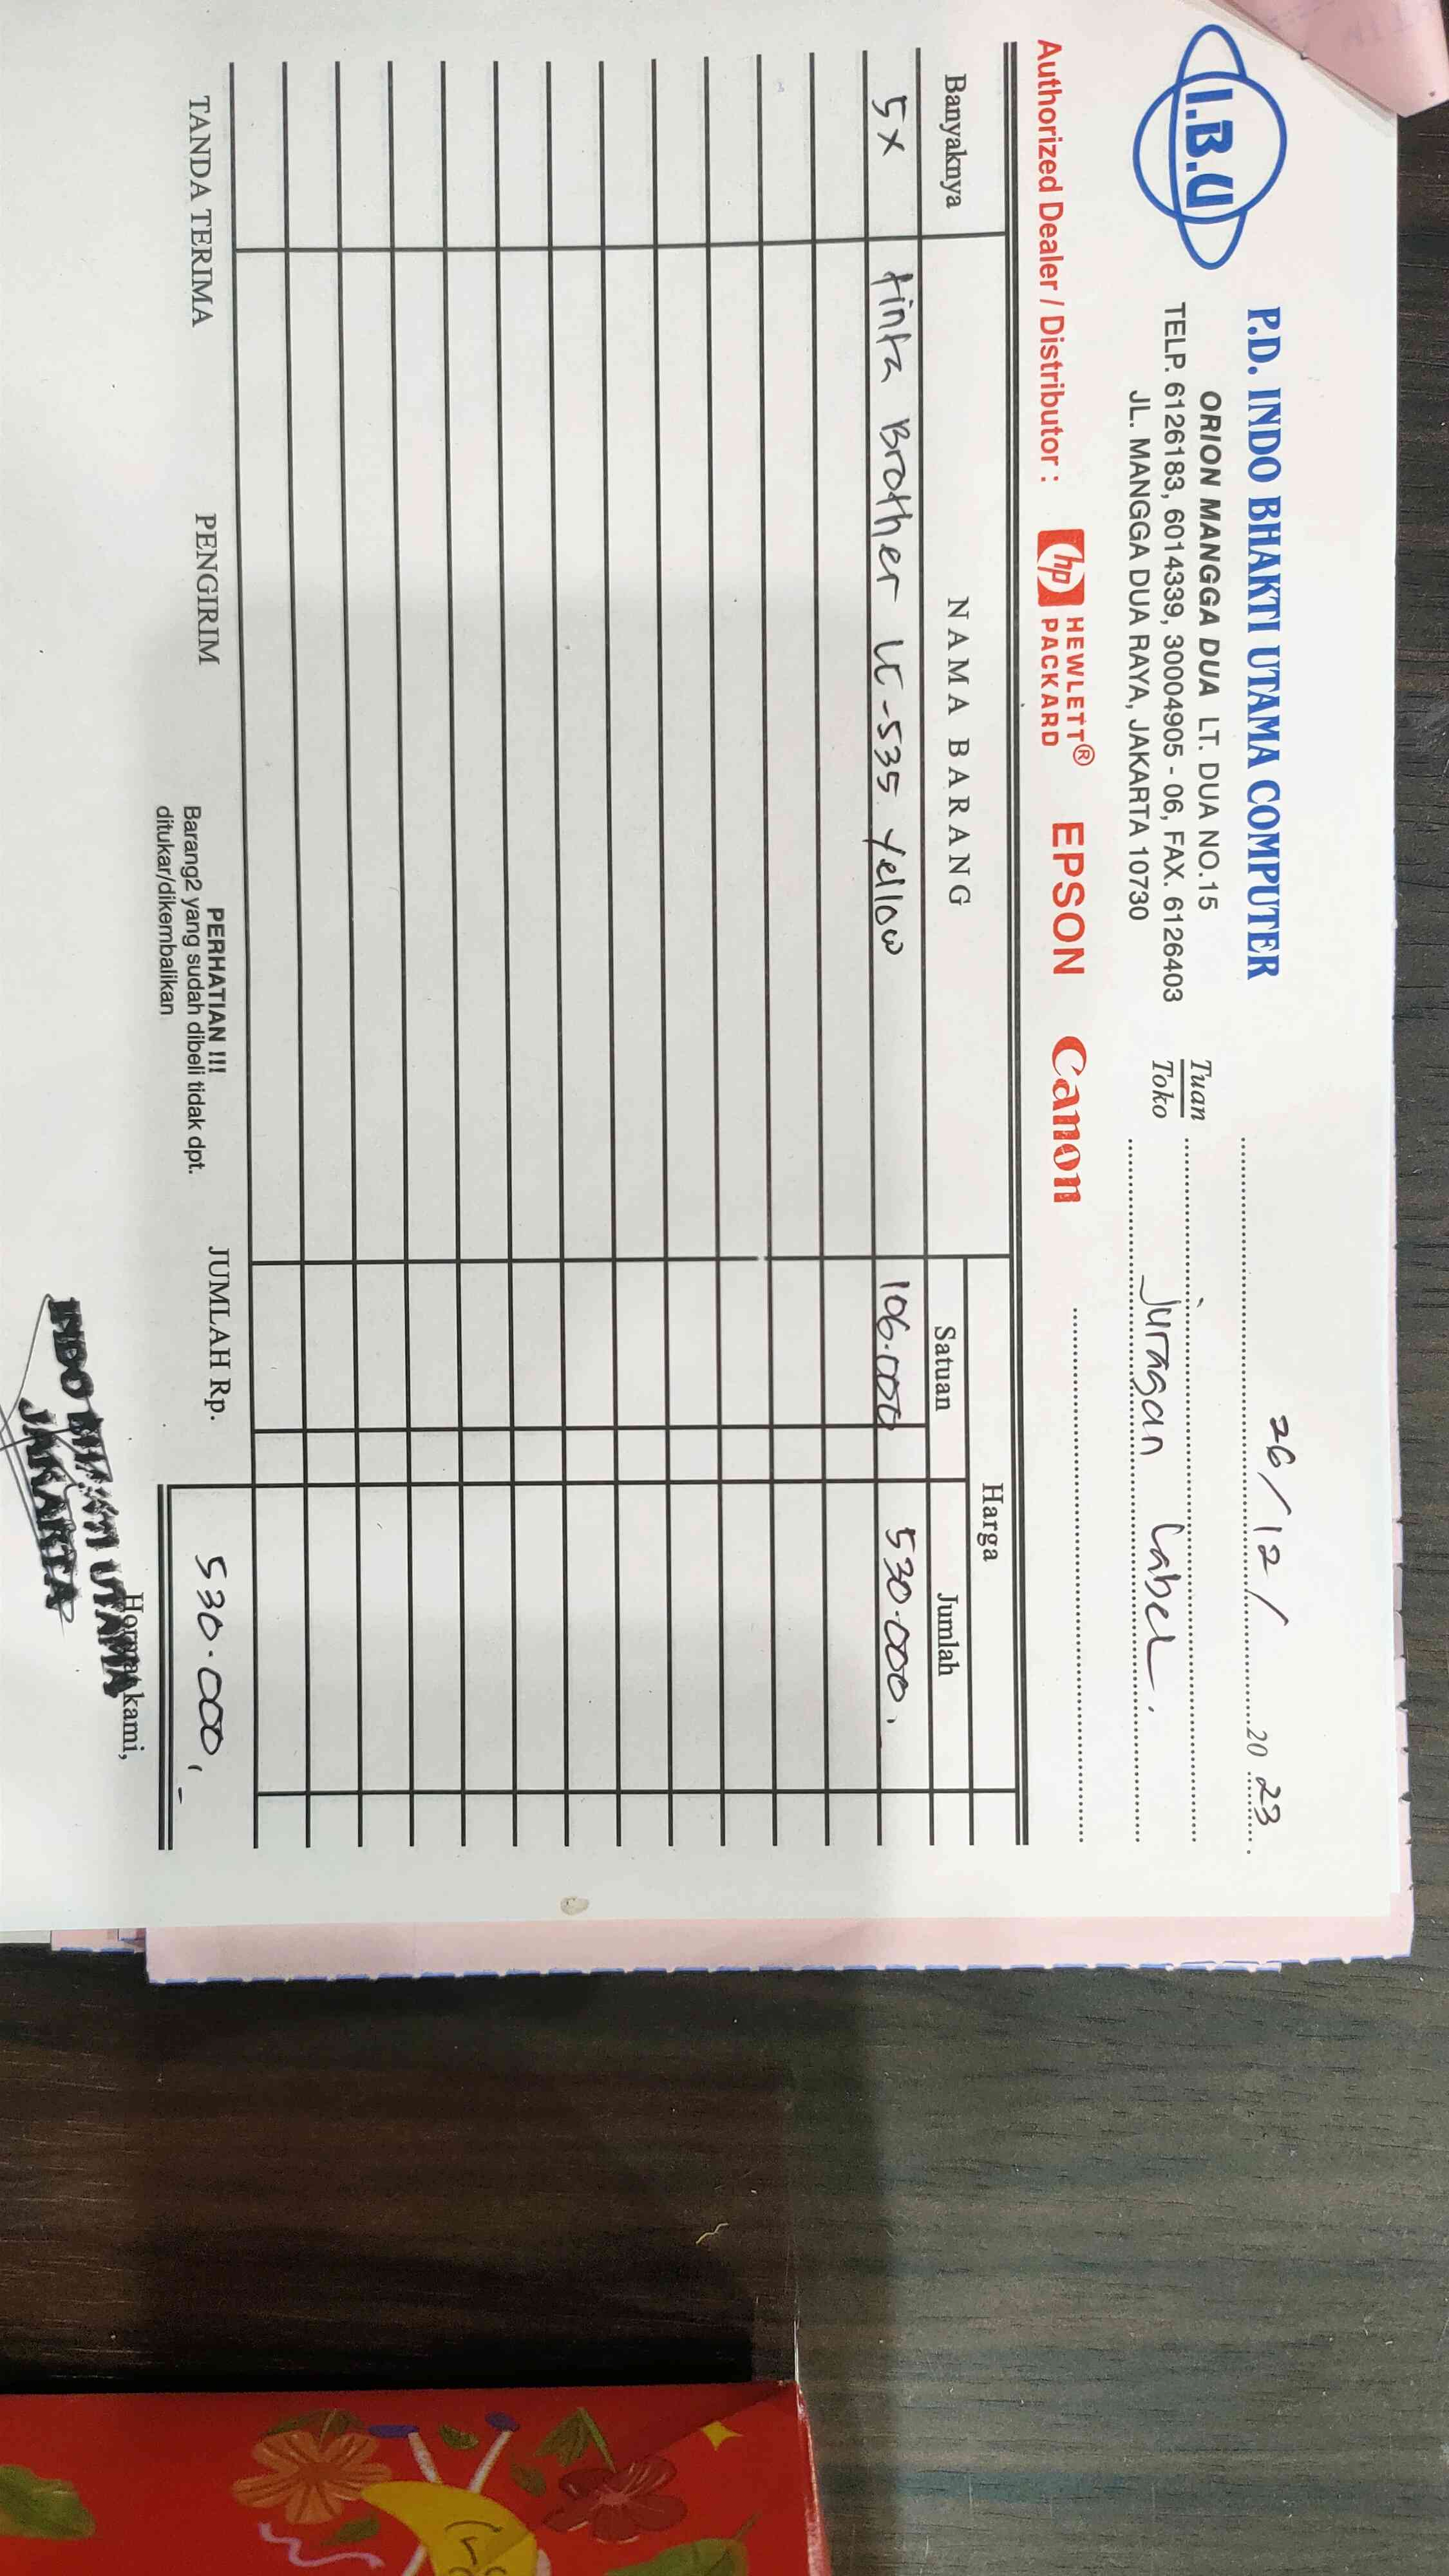 I.B.U
P.D. INDO BHAKTI UTAMA COMPUTER
ORION MANGGA DUA LT. DUA NO.15
TELP. 6126183, 6014339, 30004905 - 06, FAX. 6126403
JL. MANGGA DUA RAYA, JAKARTA 10730
26/12/ 20 23
Tuan
Toko
Juragan Label.
Authorized Dealer / Distributor : hp HEWLETT® PACKARD EPSON Canon
Banyaknya NAMA BARANG Harga
Satuan Jumlah
5x tinta Brother LC-535 Yellow 106.000 530.000,
TANDA TERIMA PENGIRIM PERHATIAN !!! JUMLAH Rp. 530.000,-
Barang2 yang sudah dibeli tidak dpt.
ditukar/dikembalikan
Hormat kami,
INDO BHAKTI UTAMA
JAKARTA